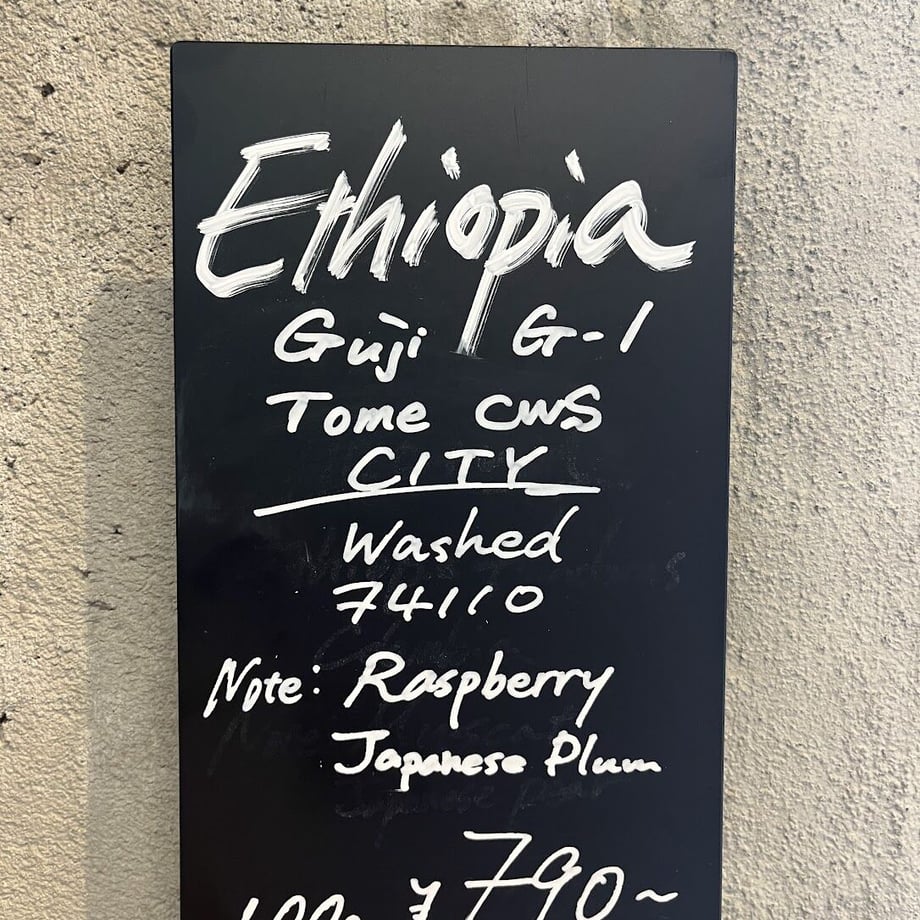 Ethiopia
Guji G-1
Tome CWS
CITY
Washed
74110
Note: Raspberry
Japanese Plum
¥790~